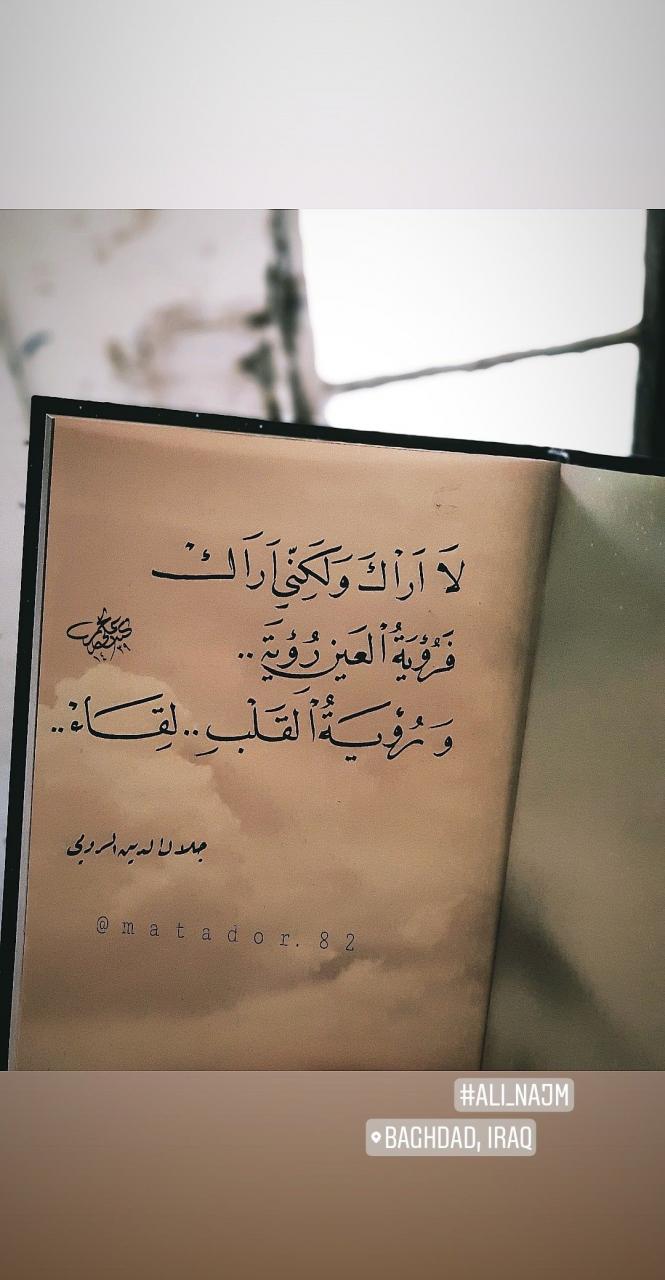 لَا اَرَاكَ وَلَكِنّي اَرَاكْ
فَرُؤيَةُ العَينِ رُؤيَة..
وَ رُؤيَةُ القَلْبِ.. لِقَاءْ..
جلال الدين الرومي
@matador.82
#ALI_NAJM
BAGHDAD, IRAQ